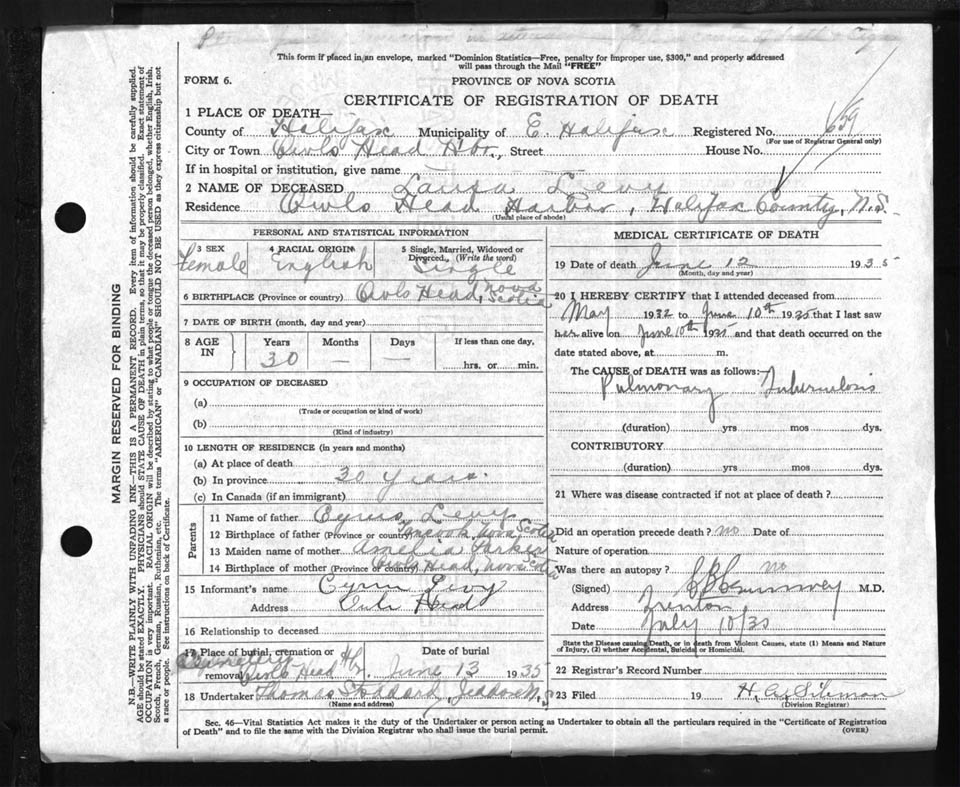 This form if placed in an envelope, marked "Dominion Statistics—Free, penalty for improper use, $300," and properly addressed
will pass through the Mail "FREE"
FORM 6.
PROVINCE OF NOVA SCOTIA
CERTIFICATE OF REGISTRATION OF DEATH
1 PLACE OF DEATH—
County of Halifax Municipality of E. Halifax Registered No. 659
(For use of Registrar General only)
City or Town Owls Head Hbr, Street House No.
If in hospital or institution, give name
2 NAME OF DECEASED Laura Levy
Residence Owls Head Harbor, Halifax County, N.S.
(Usual place of abode)
PERSONAL AND STATISTICAL INFORMATION
3 SEX
Female
4 RACIAL ORIGIN
English
5 Single, Married, Widowed or
Divorced. (Write the word)
Single
6 BIRTHPLACE (Province or country) Owls Head, Nova Scotia
7 DATE OF BIRTH (month, day and year)
8 AGE IN
Years Months Days If less than one day,
30 — — hrs. or min.
9 OCCUPATION OF DECEASED
(a)
(Trade or occupation or kind of work)
(b)
(Kind of industry)
10 LENGTH OF RESIDENCE (in years and months)
(a) At place of death
(b) In province 30 years.
(c) In Canada (if an immigrant)
Parents
11 Name of father Cyrus Levy
12 Birthplace of father (Province or country) Nova Scotia
13 Maiden name of mother Amelia Parker
14 Birthplace of mother (Province or country) Owls Head, Nova Scotia
15 Informant's name Levy
Address Head
16 Relationship to deceased
17 Place of burial, cremation or removal Date of burial
Owls Head Hbr. June 13 1935
18 Undertaker Thomas Stoddard, Jeddore N.S.
(Name and address)
MEDICAL CERTIFICATE OF DEATH
19 Date of death June 12 1935
(Month, day and year)
20 I HEREBY CERTIFY that I attended deceased from
May 1932 to June 10th 1935 that I last saw
her alive on June 10th 1935 and that death occurred on
date stated above, at m.
The CAUSE of DEATH was as follows:—
Pulmonary Tuberculosis
(duration) yrs mos dys.
CONTRIBUTORY
(duration) yrs mos dys.
21 Where was disease contracted if not at place of death?
Did an operation precede death? no Date of
Nature of operation
Was there an autopsy? no
(Signed) M.D.
Address
Date July 10/35
State the Disease causing Death, or in death from Violent Causes, state (1) Means and Nature
of Injury, (2) whether Accidental, Suicidal or Homicidal.
22 Registrar's Record Number
23 Filed 19
(Division Registrar)
Sec. 46—Vital Statistics Act makes it the duty of the Undertaker or person acting as Undertaker to obtain all the particulars required in the "Certificate of Registration
of Death" and to file the same with the Division Registrar who shall issue the burial permit.
(OVER)
MARGIN RESERVED FOR BINDING
N.B.—WRITE PLAINLY WITH UNFADING INK—THIS IS A PERMANENT RECORD. Every item of information should be carefully supplied.
AGE should be stated EXACTLY. PHYSICIANS should STATE CAUSE OF DEATH in plain terms, so that it may be properly classified. Exact statement of
OCCUPATION is very important. RACIAL ORIGIN will be described by stating to what people or tongue the deceased person belonged, whether English, Irish,
Scotch, French, German, Russian, Ruthenian, etc. The terms "AMERICAN" or "CANADIAN" SHOULD NOT BE USED as they express citizenship but not
a race or people. See instructions on back of Certificate.